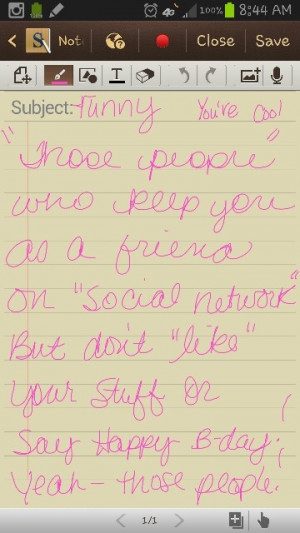 100% 8:44 AM
S Not Close Save
T
Subject: Funny You're cool
"Those people"
who keep you
as a friend
on "Social network"
But don't "like"
your stuff Or
Say Happy B-day;
Yeah - those people.
1/1